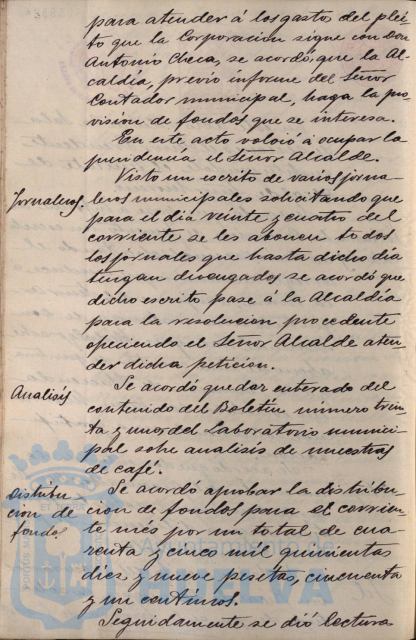 para atender á los gasto del plei-
to que la Corporacion sigue con Don
Antonio Checa, se acordó, que la Al-
caldía, previo informe del Señor
Contador municipal, haga la pro
vision de fondos que se interesa.
En este acto volvió a ocupar la
presidencia el Señor Alcalde.
Jornaleros.
Visto un escrito de varios jorna-
leros municipales solicitando que
para el dia veinte y cuatro del
corriente se les abonen todos
los jornales que hasta dicho dia
tengan devengados se acordó que
dicho escrito pase á la Alcaldía
para la resolucion procedente
ofreciendo el Señor Alcalde aten-
der dicha peticion.
Analisis
Se acordó quedar enterado del
contenido del Boletin número trein
ta y uno del Laboratorio munici-
pal sobre analisis de muestras
de café.
Distribu
cion de
fondos
Se acordó aprobar la distribu-
cion de fondos para el corrien-
te mes por un total de cua-
renta y cinco mil quinientas
diez y nueve pesetas, cincuenta
y un centimos.
Seguidamente se dió lectura
HUELVA